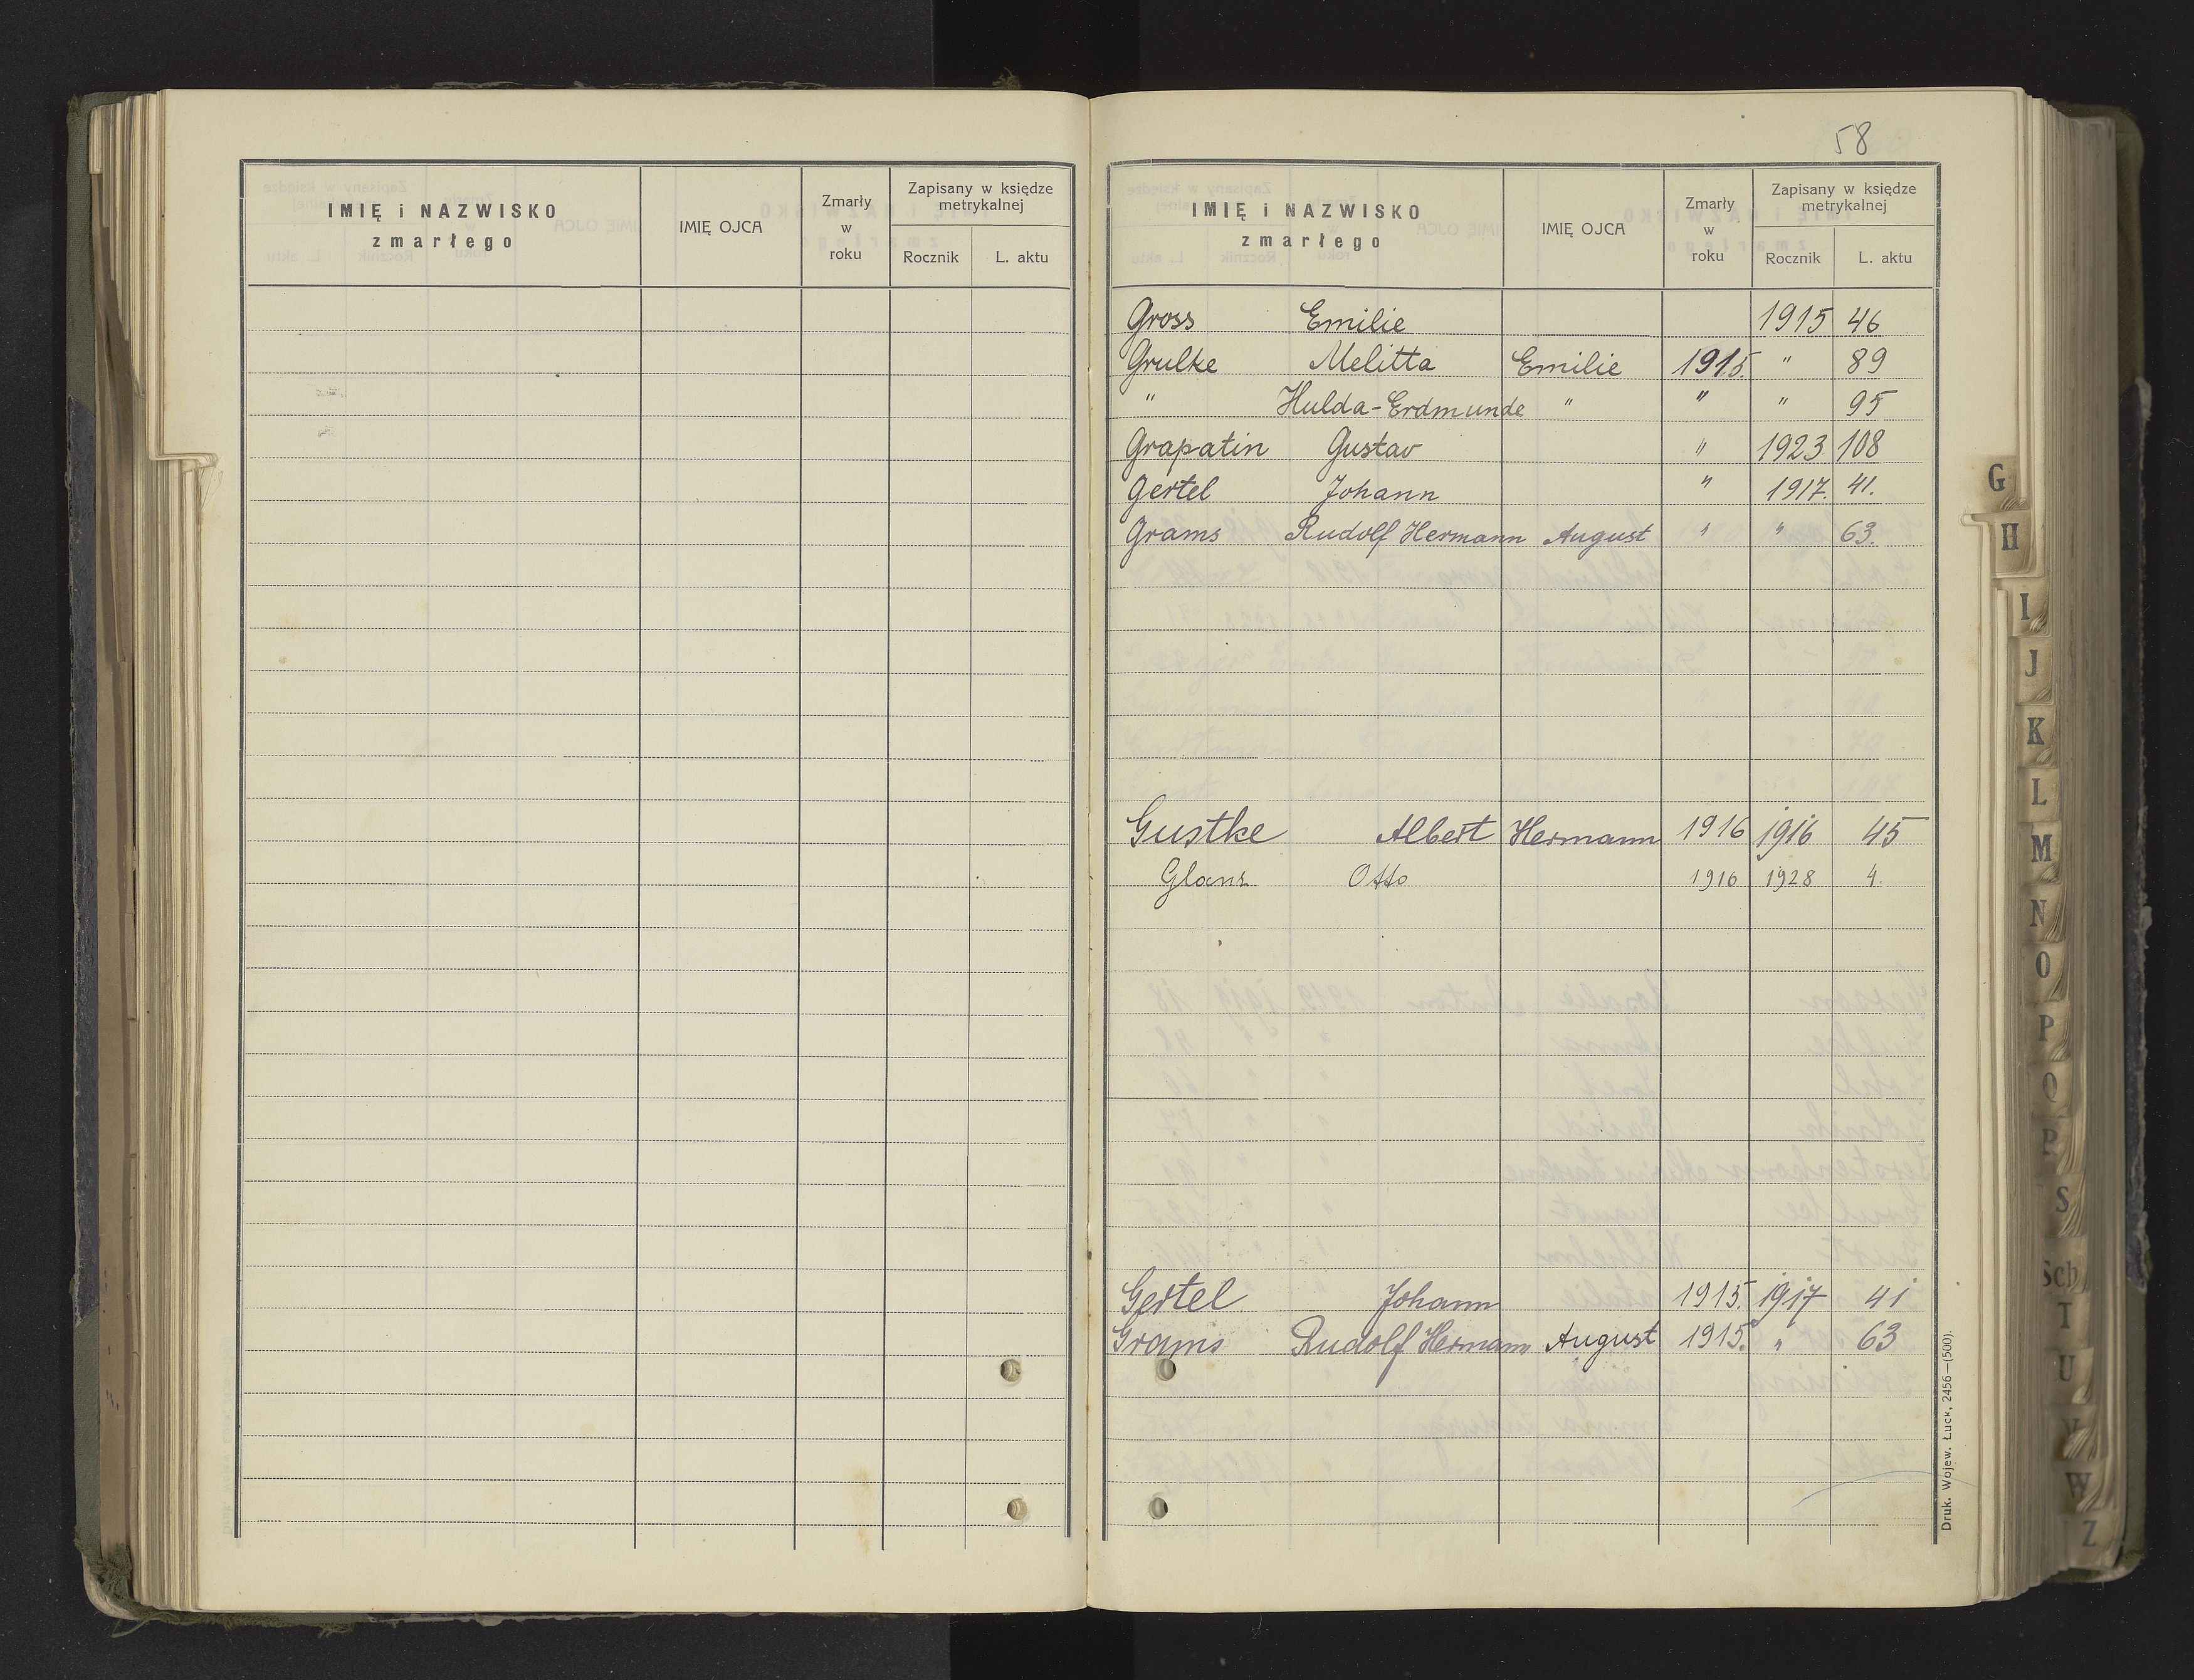 58
IMIĘ i NAZWISKO zmarłego IMIĘ OJCA Zmarły w roku Zapisany w księdze metrykalnej Rocznik L. aktu
IMIĘ i NAZWISKO zmarłego IMIĘ OJCA Zmarły w roku Zapisany w księdze metrykalnej Rocznik L. aktu
Gross Emilie 1915 46
Grulke Melitta Emilie 1915. " 89
" Hulda-Erdmunde " " " 95
Grapatin Gustav " 1923 108
Gertel Johann " 1917. 41.
Grams Rudolf Hermann August " " 63.
Gustke Albert Hermann 1916 1916 45
Glanz Otto 1916 1928 4.
Gertel Johann 1915. 1917 41
Grams Rudolf Hermann August 1915. " 63
Druk. Wojew. Łuck, 2456—(500).
G
H
I
J
K
L
M
N
O
P
Q
R
S
Sch
T
U
V
W
Z